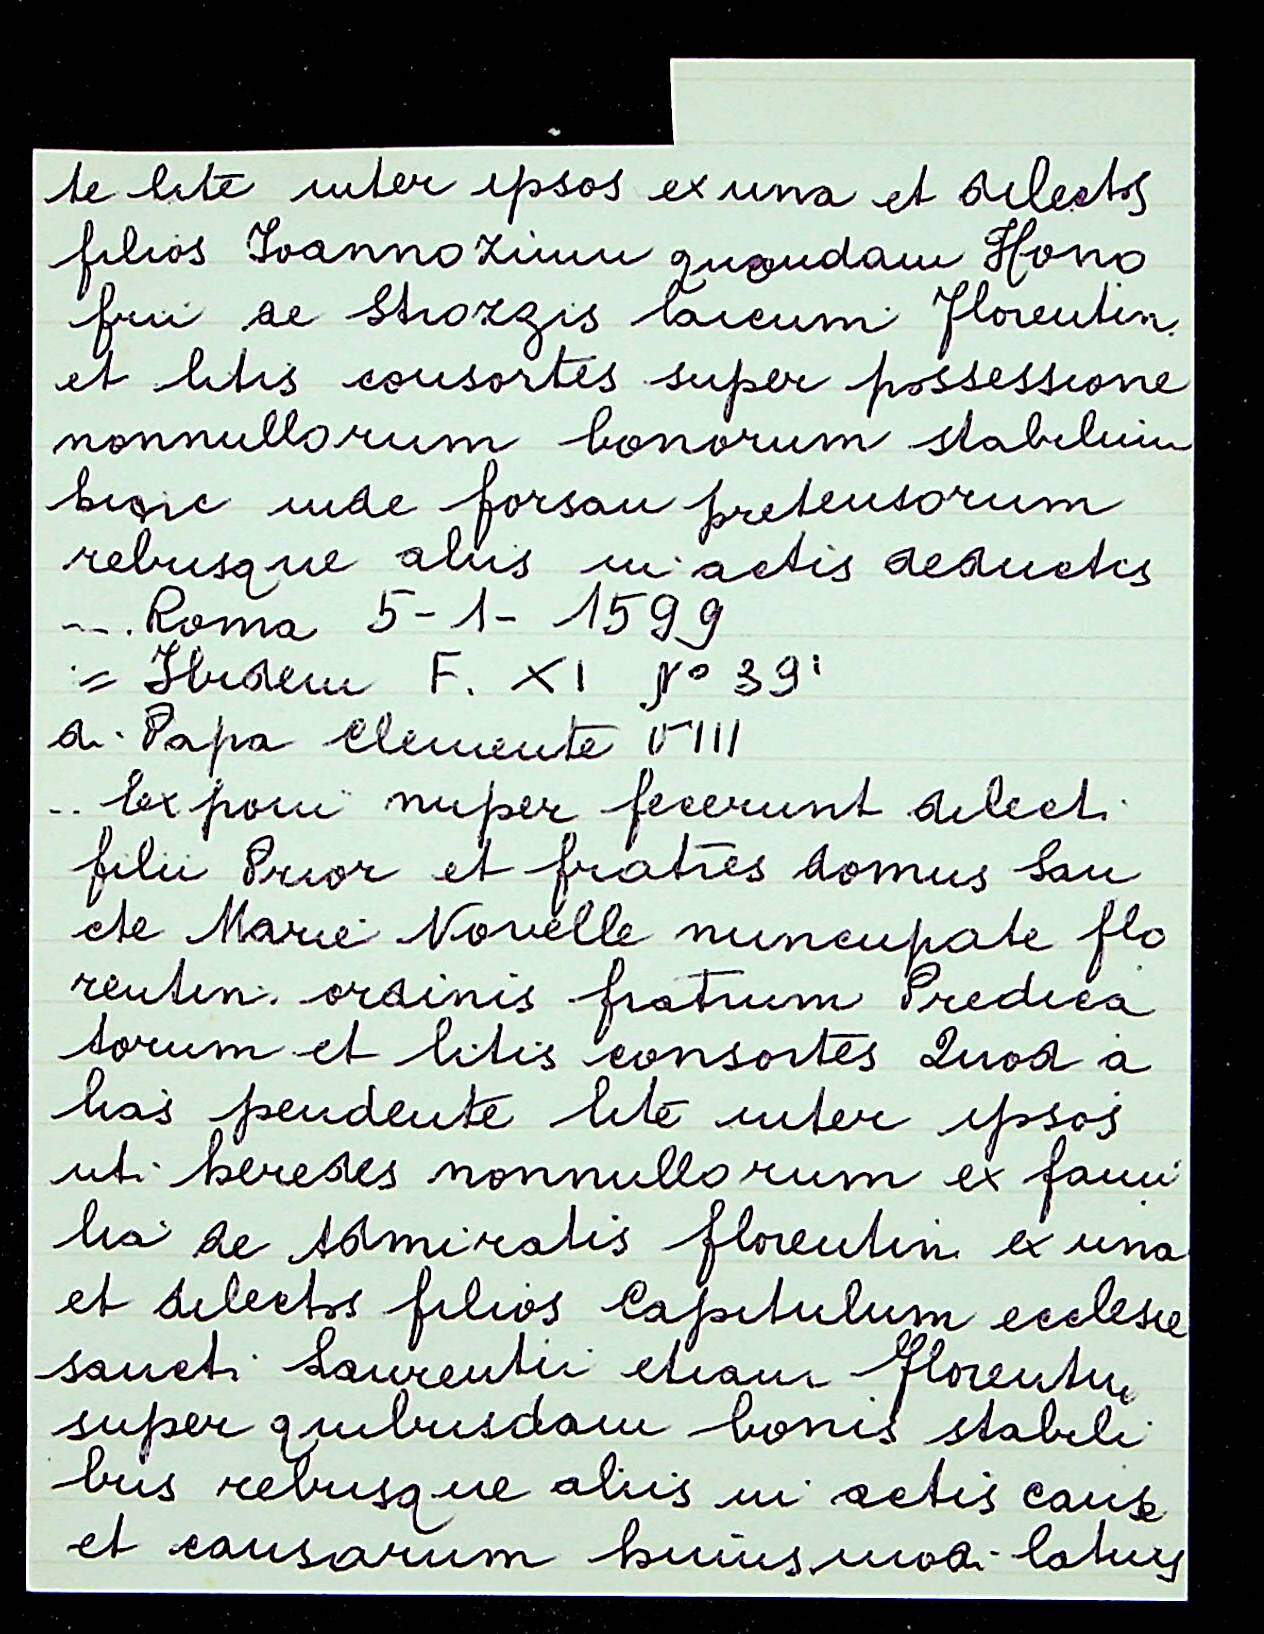 te lite inter ipsos ex una et dilectos
filios Ioannozium quondam Hono
frii de Strozzis laicum Florentin.
et litis consortes super possessione
nonnullorum bonorum stabilium
hinc inde forsan pretensorum
rebusque aliis in actis deductis
.... Roma 5-1-1599
= Ibidem F. XI Nº 39
di Papa Clemente VIII
.. Exponi nuper fecerunt dilecti
filii Prior et fratres domus San
cte Marie Novelle nuncupate flo
rentin. ordinis fratrum Predica
torum et litis consortes Quod a
lias pendente lite inter ipsos
uti heredes nonnullorum ex fami
lia de Admiratis florentin. ex una
et dilectos filios Capitulum ecclesie
sancti Laurentii etiam Florentin
super quibusdam bonis stabili
bus rebusque aliis in actis cause
et causarum huiusmodi latius